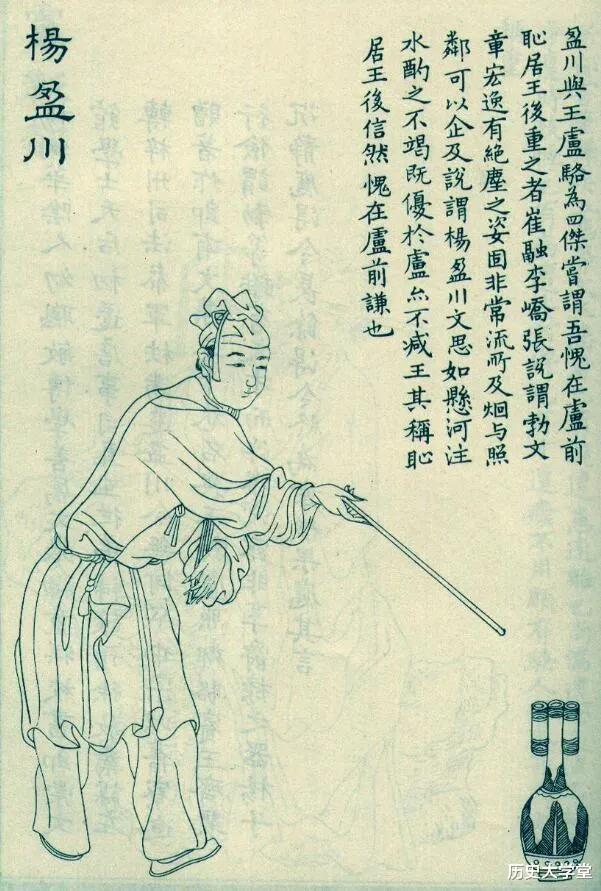 盈川與王盧駱為四傑嘗謂吾愧在盧前
恥居王後重之者崔融李嶠張說謂勃文
章宏逸有絕塵之姿固非常流所及炯与照
鄰可以企及說謂楊盈川文思如懸河注
水酌之不竭既優於盧亦不减王其稱恥
居王後信然愧在盧前謙也
楊盈川
历史大学堂